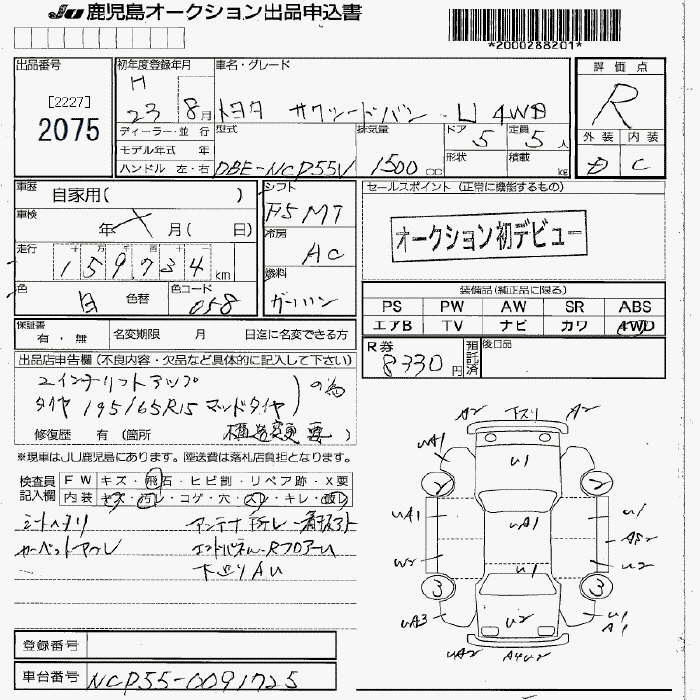 JU 鹿児島オークション出品申込書
*2000288201*
出品番号
[2227]
2075
初年度登録年月
H
23 8月
車名・グレード
トヨタ サクシードバン U 4WD
評価点
R
外装 内装
D C
ディーラー・並 行
モデル年式 年
ハンドル 左・右
型式
DBE-NCP55V
排気量
1500 cc
ドア 5
定員 5 人
形状
積載 kg
車歴
自家用( )
車検
年 月( 日)
走行
十 万 千 百 十 一
159734 km
色
白
色替
色コード
058
シフト
F5MT
冷房
AC
燃料
ガソリン
セールスポイント (正常に機能するもの)
オークション初デビュー
装備品(純正品に限る)
PS PW AW SR ABS
エアB TV ナビ カワ 4WD
保証書
有・無
名変期限 月 日迄に名変できる方
R券
8330円
預託済
後日品
出品店申告欄(不良内容・欠品など具体的に記入して下さい)
2インチリフトアップ
タイヤ 195/65R15 マッドタイヤ
の為
修復歴 有 (箇所
構造変更要
※現車はJU鹿児島にあります。陸送費は落札店負担となります。
検査員
記入欄
FW キズ・飛石・ヒビ割・リペア跡・X要
内装 キズ・汚レ・コゲ・穴・スレ・キレ・破レ
シートヘタリ
アンテナ折レ
カーペット
エンドパネル・Rフロアー
下廻りAU
A2 下スリ A2
UA1 U1
2 2
UA1 UA1 U1
AS2
W2 U1 U2
3 3
UA3 U2 U1
A1
UA2 A4U2
登録番号
車台番号
NCP55-0091725